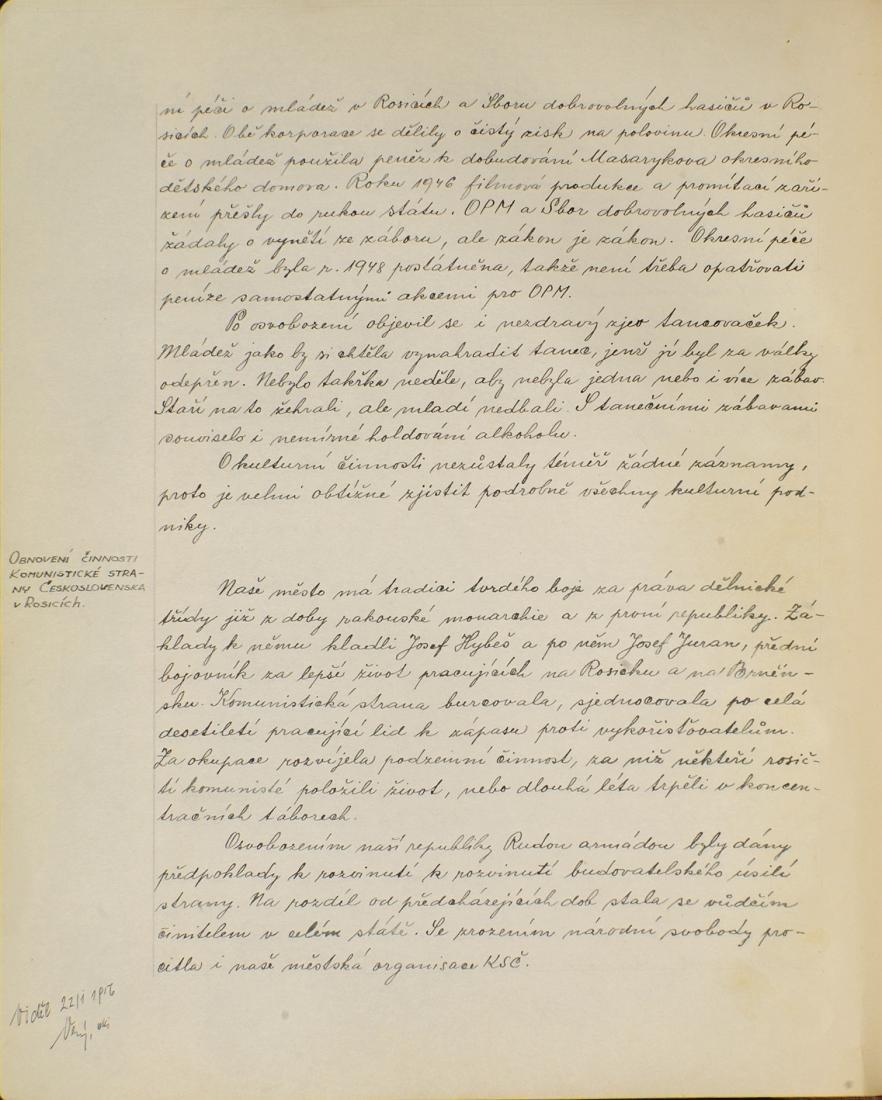 ní péčí o mládež v Rosicích a Sboru dobrovolných hasičů v Ro-
sicích. Obě korporace se dělily o čistý zisk na polovinu. Okresní pé-
če o mládež použila peněz k dobudování Masarykova okresního
dětského domova. Roku 1946 filmová produkce a promítací zaří-
zení přešly do rukou státu. OPM a Sbor dobrovolných hasičů
žádaly o vynětí ze záboru, ale zákon je zákon. Okresní péče
o mládež byla r. 1948 postátněna, takže není třeba opatřovati
peníze samostatnými akcemi pro OPM.
Po osvobození objevil se i nezdravý zjev tancovaček.
Mládež jako by si chtěla vynahradit tanec, jenž jí byl za války
odepřen. Nebylo takřka neděle, aby nebyla jedna nebo i více zábav.
Staří na to žehrali, ale mladí nedbali. S tanečními zábavami
souviselo i nemírné holdování alkoholu.
O kulturní činnosti nezůstaly téměř žádné záznamy,
proto je velmi obtížné zjistit podrobně všechny kulturní pod-
niky.
OBNOVENÍ ČINNOSTI
KOMUNISTICKÉ STRA-
NY ČESKOSLOVENSKA
V ROSICÍCH.
Naše město má tradici tvrdého boje za práva dělnické
třídy již z doby rakouské monarchie a z první republiky. Zá-
klady k němu kladli Josef Hybeš a po něm Josef Juran, přední
bojovník za lepší život pracujících na Rosicku a na Brněn-
sku. Komunistická strana burcovala, sjednocovala po celá
desetiletí pracující lid k zápasu proti vykořisťovatelům.
Za okupace rozvíjela podzemní činnost, za niž někteří rosič-
tí komunisté položili život, nebo dlouhá léta trpěli v koncen-
tračních táborech.
Osvobozením naší republiky Rudou armádou byly dány
předpoklady k rozvinutí k rozvinutí budovatelského úsilí
strany. Na rozdíl od předcházejících dob stala se vůdčím
činitelem v celém státě. Se zrozením národní svobody pro-
citla i naše městská organisace KSČ.
Viděl 22/1 1956